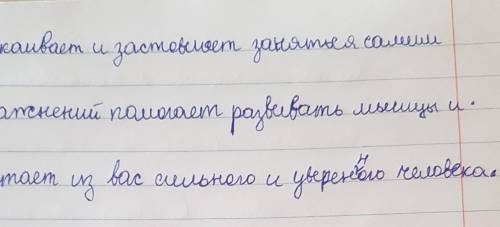 каивает и застовляет заняться самим
ажнений помогает развивать мышцы и.
тает из вас сильного и увереного человека.